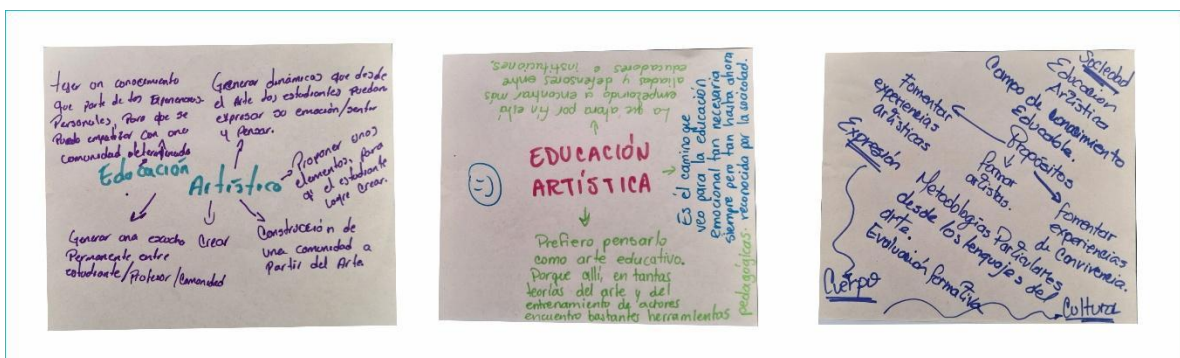 tejer un conocimiento
que parte de las Experiencias
Personales, Para que se
Pueda empatizar con una
comunidad determinada
Generar dinámicas que desde
el Arte los estudiantes puedan
expresar su emoción/sentir
y Pensar.
Educación
Artística
Proponer unos
elementos, para
q' el estudiante
logre crear.
Generar una escucha
Permanente entre
estudiante/Profesor/Comunidad
Crear
Construcción de
una comunidad a
Partir del Arte
La que ahora por fin está
empezando a encontrar más
aliados y defensores entre
educadores e instituciones.
EDUCACIÓN
ARTÍSTICA
Es el camino que
veo para la educación
emocional tan necesaria
siempre pero tan hasta ahora
reconocida por la sociedad.
Prefiero pensarlo
como arte educativo.
Porque allí, en tantas
teorías del arte y del
entrenamiento de actores
encuentro bastantes herramientas
pedagógicas.
Sociedad
Educación
Artística
Campo de conocimiento
Educable.
Fomentar
experiencias
artísticas
Propósitos
formar
artistas.
fomentar
experiencias
de Convivencia.
Expresión
Metodologías Particulares
desde los lenguajes del
arte.
Evaluación formativa
Cuerpo
Cultura